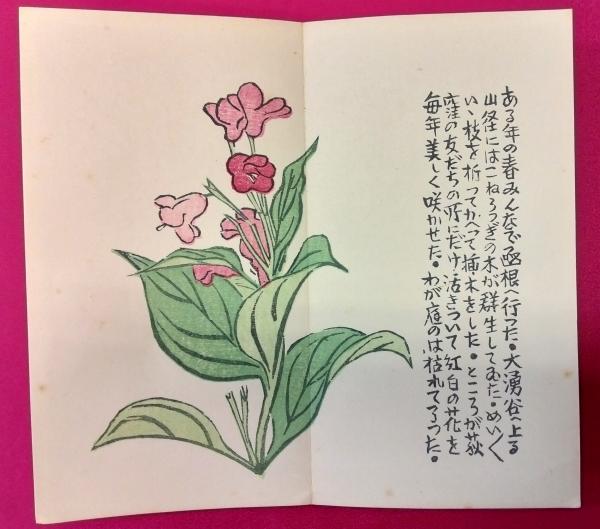 ある年の春みんなで函根へ行つた。大湧谷へ上る
山径にはこねうつぎの木が群生してゐた。めい〱
い丶枝を折つてかへつて挿木をした。ところが荻
窪の友だちの所にだけ活きついて紅白の花を
毎年美しく咲かせた。わが庭のは枯れてうつた。